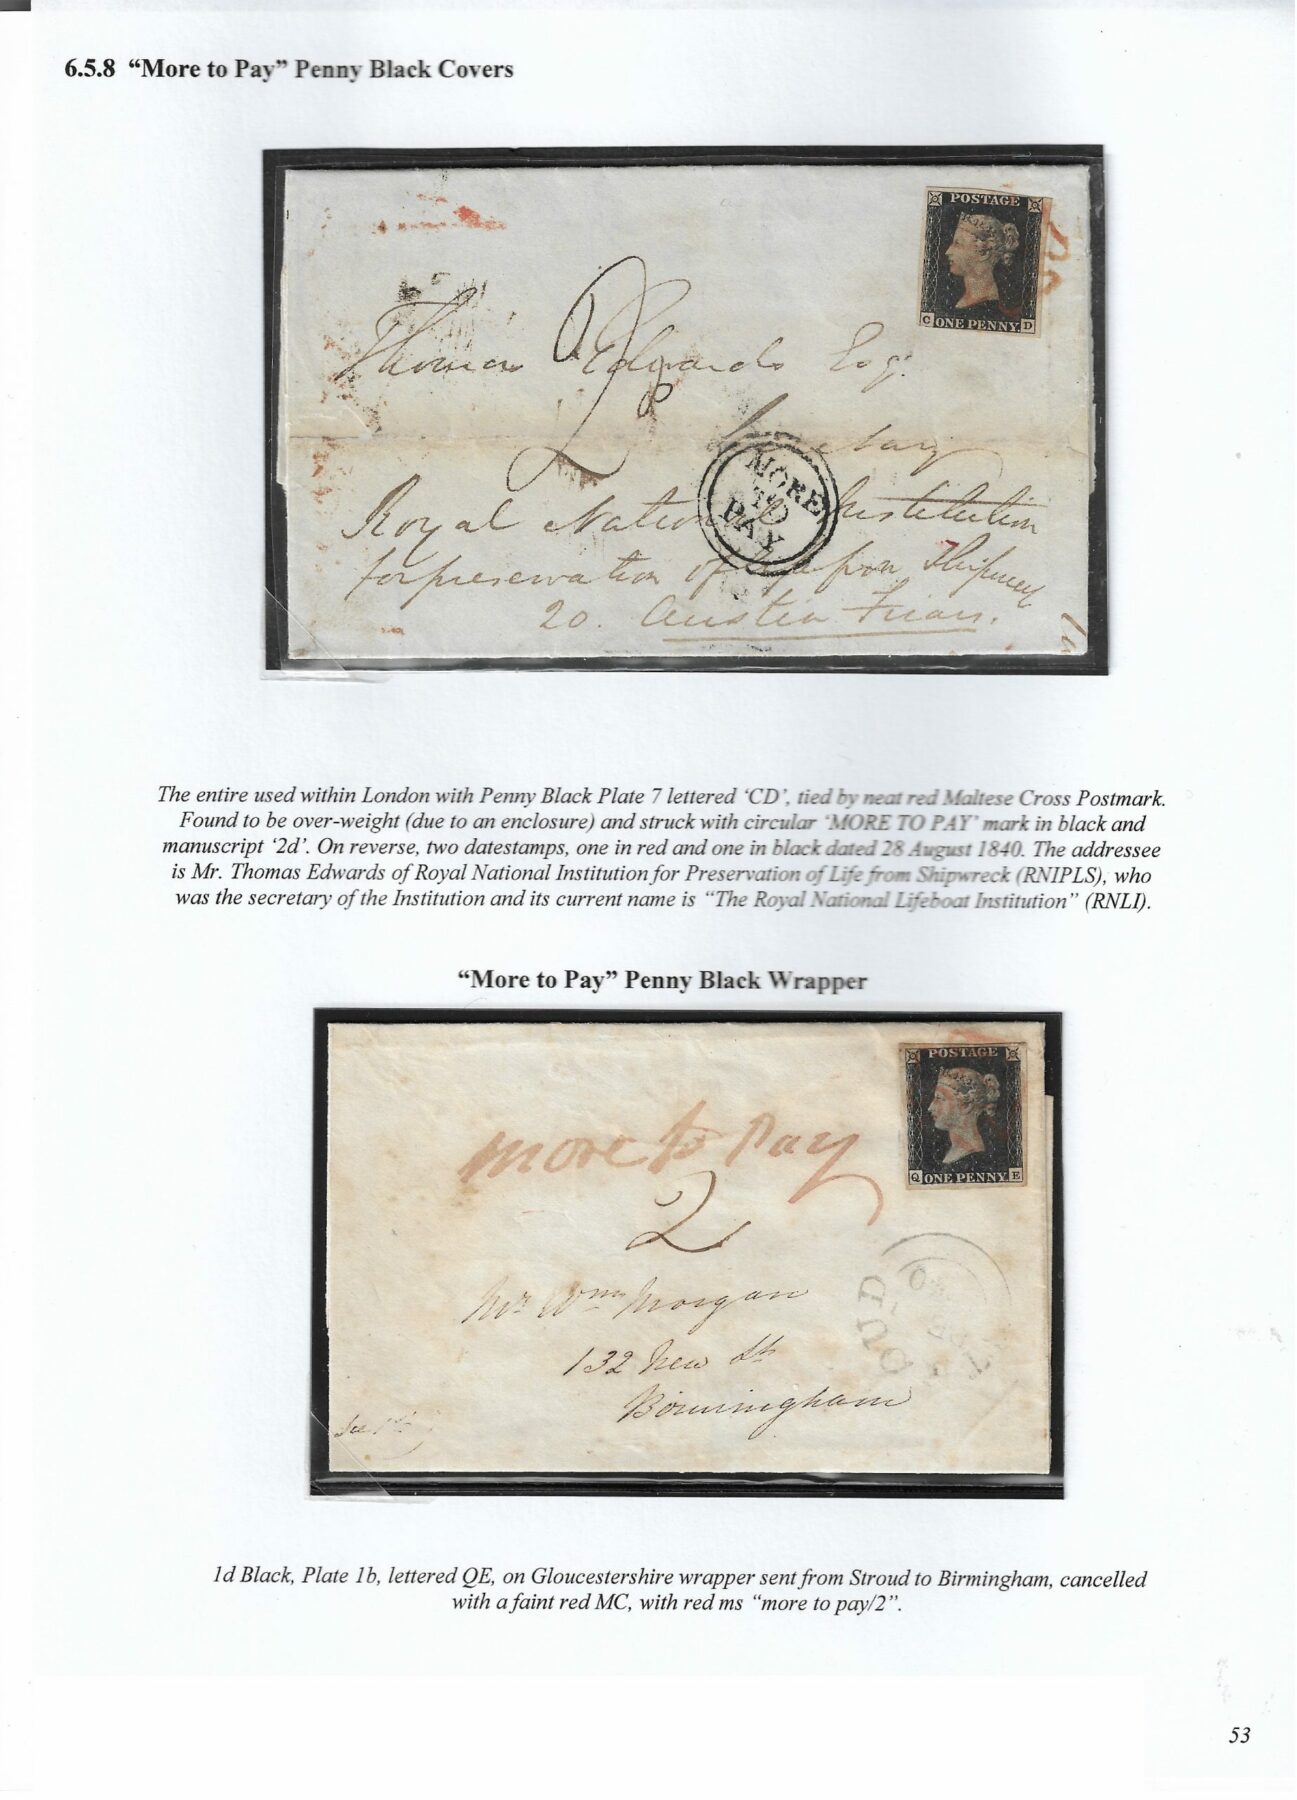 6.5.8 “More to Pay” Penny Black Covers
POSTAGE
C ONE PENNY D
2d
Thomas Edwards Esqr
MORE
TO
PAY
Royal National Institution
for preservation of life from Shipwreck
20. Austin Friars.
The entire used within London with Penny Black Plate 7 lettered ‘CD’, tied by neat red Maltese Cross Postmark.
Found to be over-weight (due to an enclosure) and struck with circular ‘MORE TO PAY’ mark in black and
manuscript ‘2d’. On reverse, two datestamps, one in red and one in black dated 28 August 1840. The addressee
is Mr. Thomas Edwards of Royal National Institution for Preservation of Life from Shipwreck (RNIPLS), who
was the secretary of the Institution and its current name is “The Royal National Lifeboat Institution” (RNLI).
“More to Pay” Penny Black Wrapper
POSTAGE
Q ONE PENNY E
more to Pay
2
Mr Wm Morgan
132 New St
Birmingham
OUD
1d Black, Plate 1b, lettered QE, on Gloucestershire wrapper sent from Stroud to Birmingham, cancelled
with a faint red MC, with red ms “more to pay/2”.
53